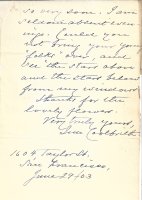 so very soon. I am
seldom absent even-
ings. Could you
not bring your young
"folks" over, and
see the stars above
and the stars below
from my windows?
Thanks for the
lovely flowers.
Very truly yours,
Ina Coolbrith
1604 Taylor St.
San Francisco,
June 29/03